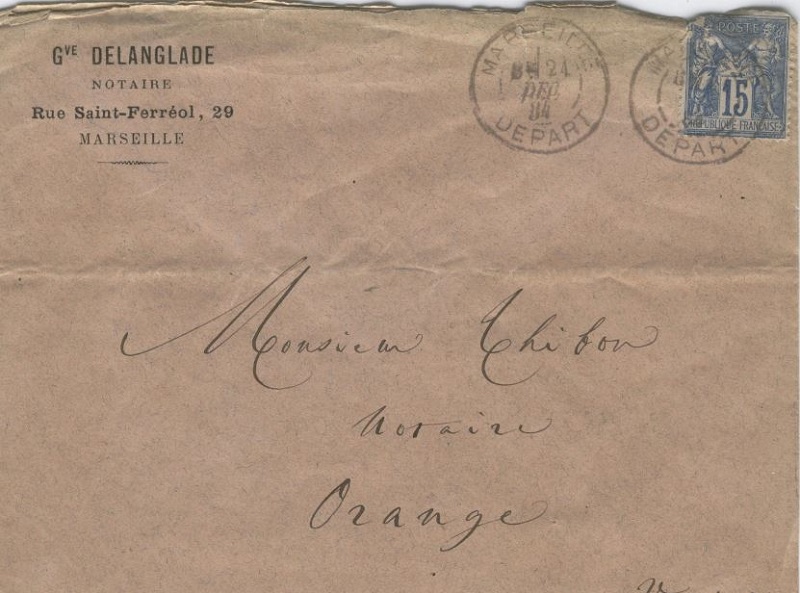 Gve DELANGLADE
NOTAIRE
Rue Saint-Ferréol, 29
MARSEILLE
MARSEILLE
21
DEC
84
DEPART
POSTE
15
REPUBLIQUE FRANÇAISE
DEPART
Monsieur Thibon
Notaire
Orange